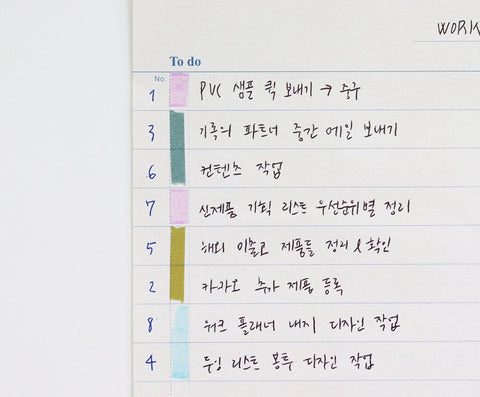 WORK
To do
No.
1 PVC 샘플 퀵 보내기 → 중구
3 기록의 파트너 중간 메일 보내기
6 컨텐츠 작업
7 신제품 기획 리스트 우선순위별 정리
5 해외 미출고 제품들 정리 & 확인
2 카카오 추가 제품 등록
8 워크 플래너 내지 디자인 작업
4 두잉 리스트 봉투 디자인 작업